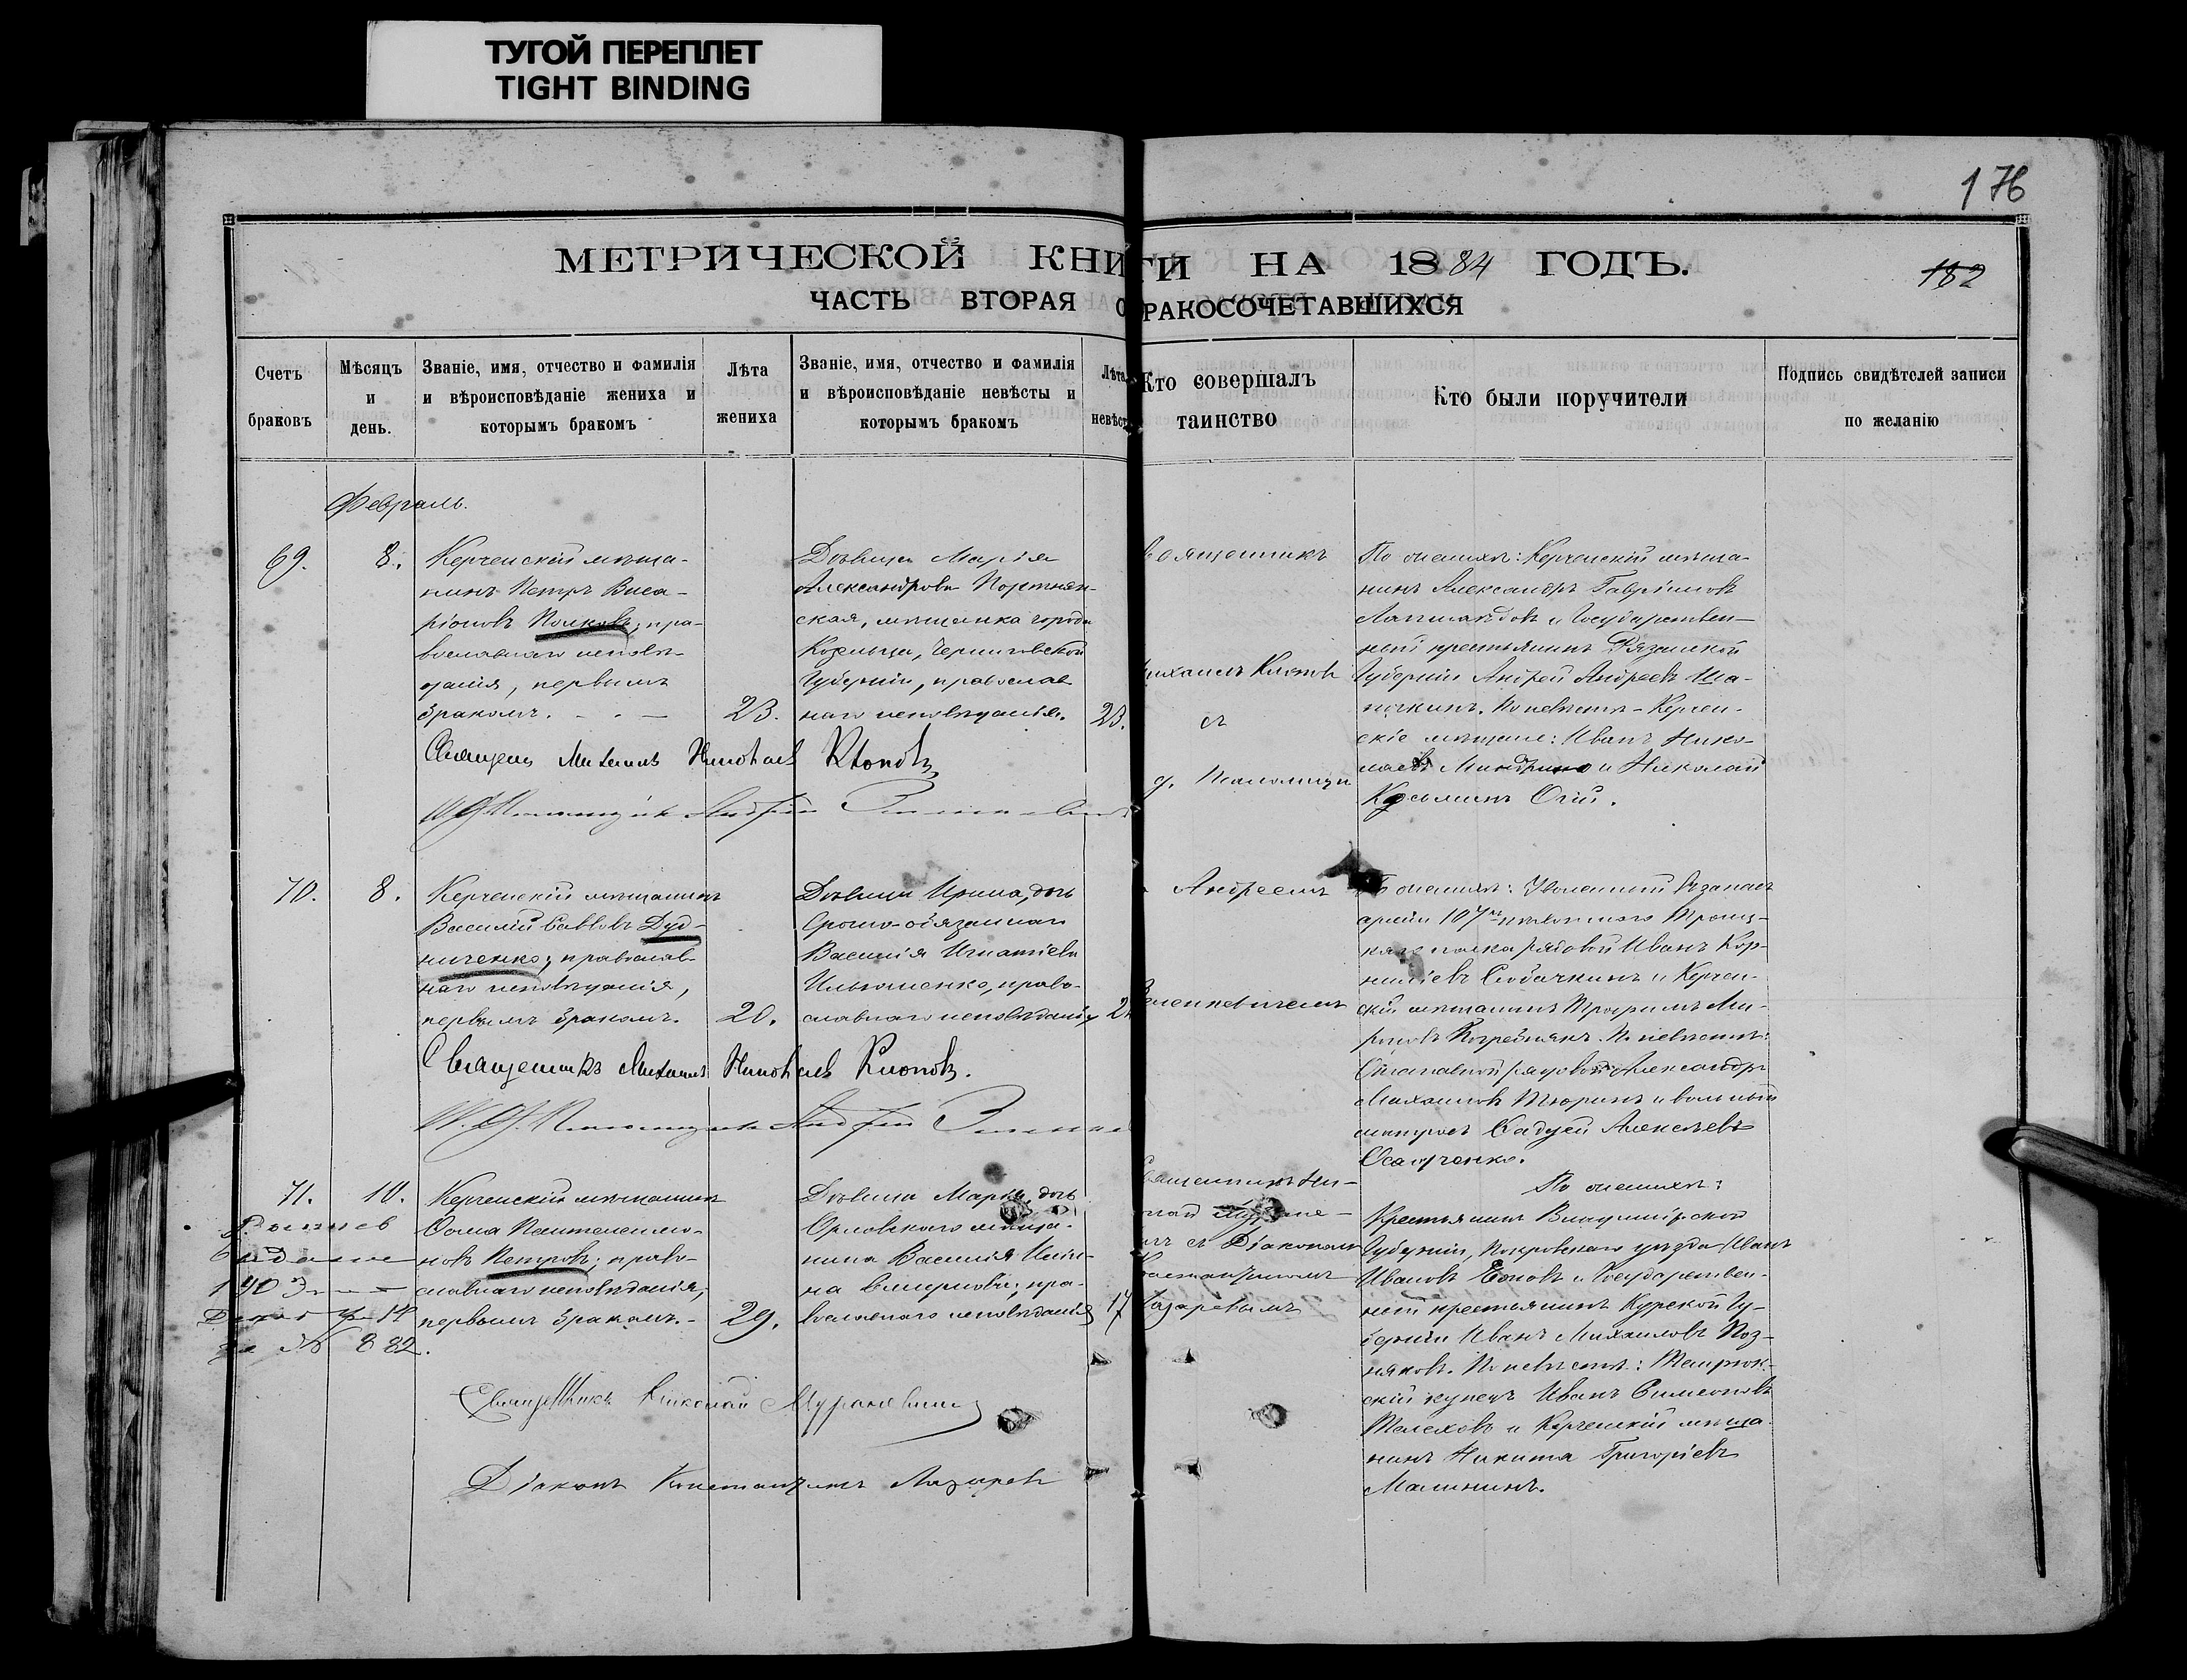 ТУГОЙ ПЕРЕПЛЕТ
TIGHT BINDING
176
МЕТРИЧЕСКОЙ КНИГИ НА 1884 ГОДЪ.
182
ЧАСТЬ ВТОРАЯ О БРАКОСОЧЕТАВШИХСЯ
Счетъ браковъ
Мѣсяцъ и день.
Званіе, имя, отчество и фамилія
и вѣроисповѣданіе жениха и
которымъ бракомъ
Лѣта
жениха
Званіе, имя, отчество и фамилія
и вѣроисповѣданіе невѣсты и
которымъ бракомъ
Лѣта
невѣст
Кто совершалъ
таинство
Кто были поручители
Подпись свидѣтелей записи
по желанію
Февраль.
69.
8.
Керченскій мѣща-
нинъ Петръ Виса-
ріоновъ Полковъ; пра-
вославнаго исповѣ-
данія, первымъ
бракомъ.
23.
Дѣвица Марія
Александрова Портнян-
ская, мѣщанка города
Козельца, Черниговской
Губерніи, православ
наго исповѣданія.
23.
Священникъ
Михаилъ Клоповъ
съ
д. Псаломщи
По женихѣ: Керченскій мѣща-
нинъ Александръ Гавріиловъ
и Государствен-
ный крестьянинъ Рязанской
Губерніи Андрей Андреевъ Ша-
По невѣстѣ - Керчен-
скіе мѣщане: Иванъ Нико-
лаевъ и Николай
Козьминъ
Священ Михаилъ Николаевъ Клоповъ
И. д. Псаломщика Андрей
70.
8.
Керченскій мѣщанинъ
Василій Савовъ Дуд-
ниченко; православ-
наго исповѣданія,
первымъ бракомъ.
20.
Дѣвица Ирина, дочь
Срочно-обязаннаго
Василія Игнатіева
Ильюшенко, право-
славнаго исповѣданія
2
Андреемъ
Зеленкевичемъ
По женихѣ: Уволенный въ запасъ
арміи 107го пѣхотнаго Троиц-
каго полка рядовой Иванъ Кор-
ниліевъ Собачкинъ и Керчен-
скій мѣщанинъ Трофимъ Ми-
роновъ По невѣстѣ:
рядовой Александръ
Михаиловъ Тюринъ и вольный
матросъ Алексѣевъ
Осадченко.
Священникъ Михаилъ Николаевъ Клоповъ.
И. д. Псаломщика Андрей
71.
10.
Керченскій мѣщанинъ
Ѳома Пантелеимо-
новъ Петровъ; право-
славнаго исповѣданія,
первымъ бракомъ.
29.
Дѣвица Марѳа, дочь
Орловскаго мѣща-
нина Василія
на пра-
вославнаго исповѣданія
17
Священникъ Ни-
колай
съ Діакономъ
Константиномъ
Лазаревымъ
По женихѣ:
Крестьянинъ Владимірской
Губерніи, Покровскаго уѣзда Иванъ
Ивановъ и Государствен-
ный крестьянинъ Курской Гу-
берніи Иванъ Михаиловъ Поз-
няковъ. По невѣстѣ: Темрюк-
скій купецъ Иванъ Симеоновъ
Мелеховъ и Керченскій мѣща-
нинъ Никита Григоріевъ
Малининъ.
выдано
1903
за № 882.
Священникъ Николай
Діаконъ Константинъ Лазаревъ